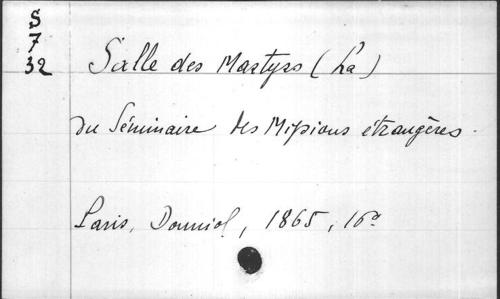 S
7
32
Salle des Martyrs (La)
du Séminaire des Missions étrangères.
Paris, Douniol, 1865, 16º